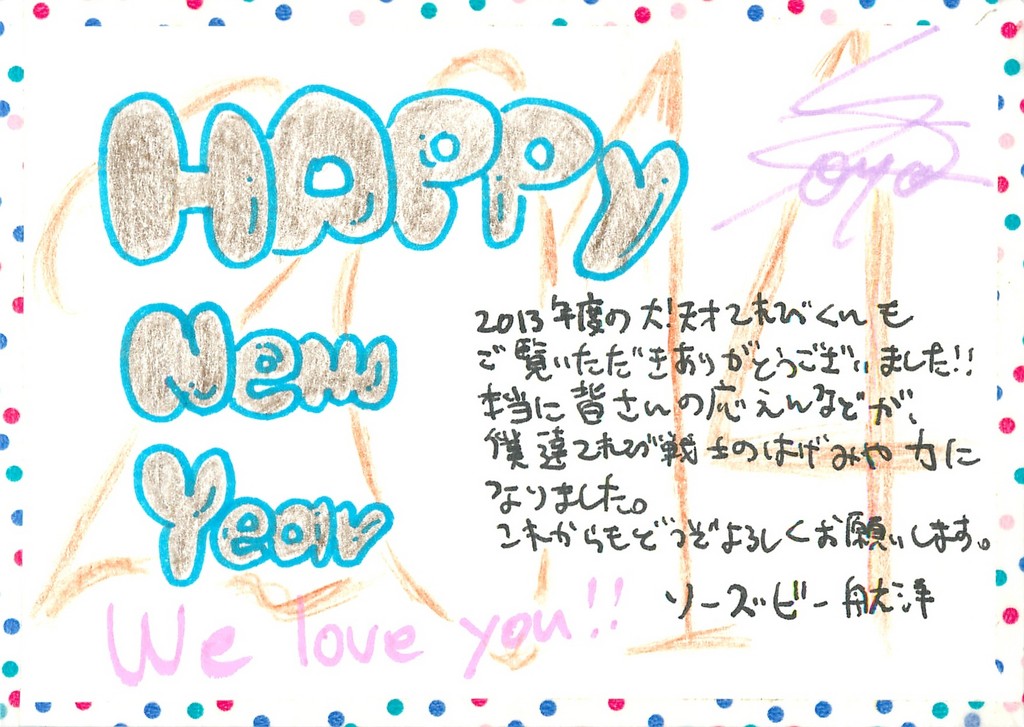 HAPPy
Soya
New
Year
2014
2013年度の大!天才てれびくんも
ご覧いただきありがとうございました!!
本当に皆さんの応えんなどが、
僕達てれび戦士のはげみや力に
なりました。
これからもどうぞよろしくお願いします。
ソーズビー航洋
We love you!!